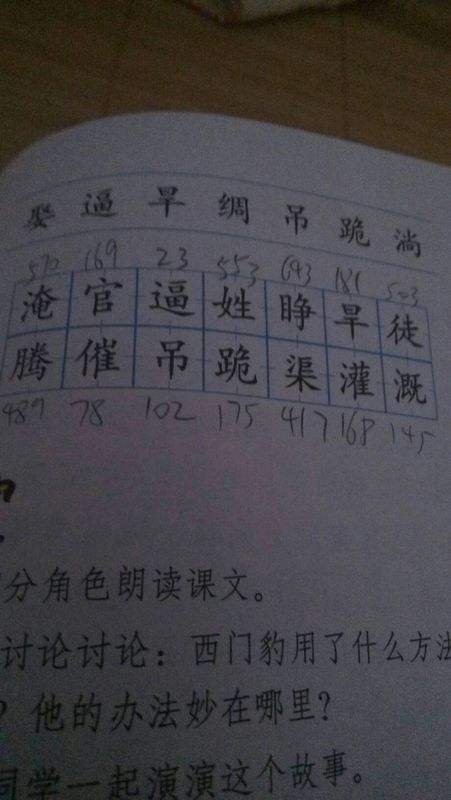 娶 逼 旱 绸 吊 跪 淌
570 169 23 553 643 181 503
淹 官 逼 姓 睁 旱 徒
腾 催 吊 跪 渠 灌 溉
489 78 102 175 417 168 145
分角色朗读课文。
讨论讨论：西门豹用了什么方法
？他的办法妙在哪里？
同学一起演演这个故事。